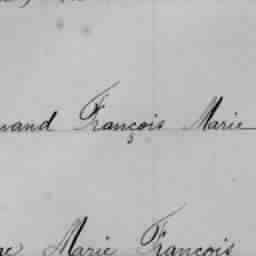 François Marie
Marie François